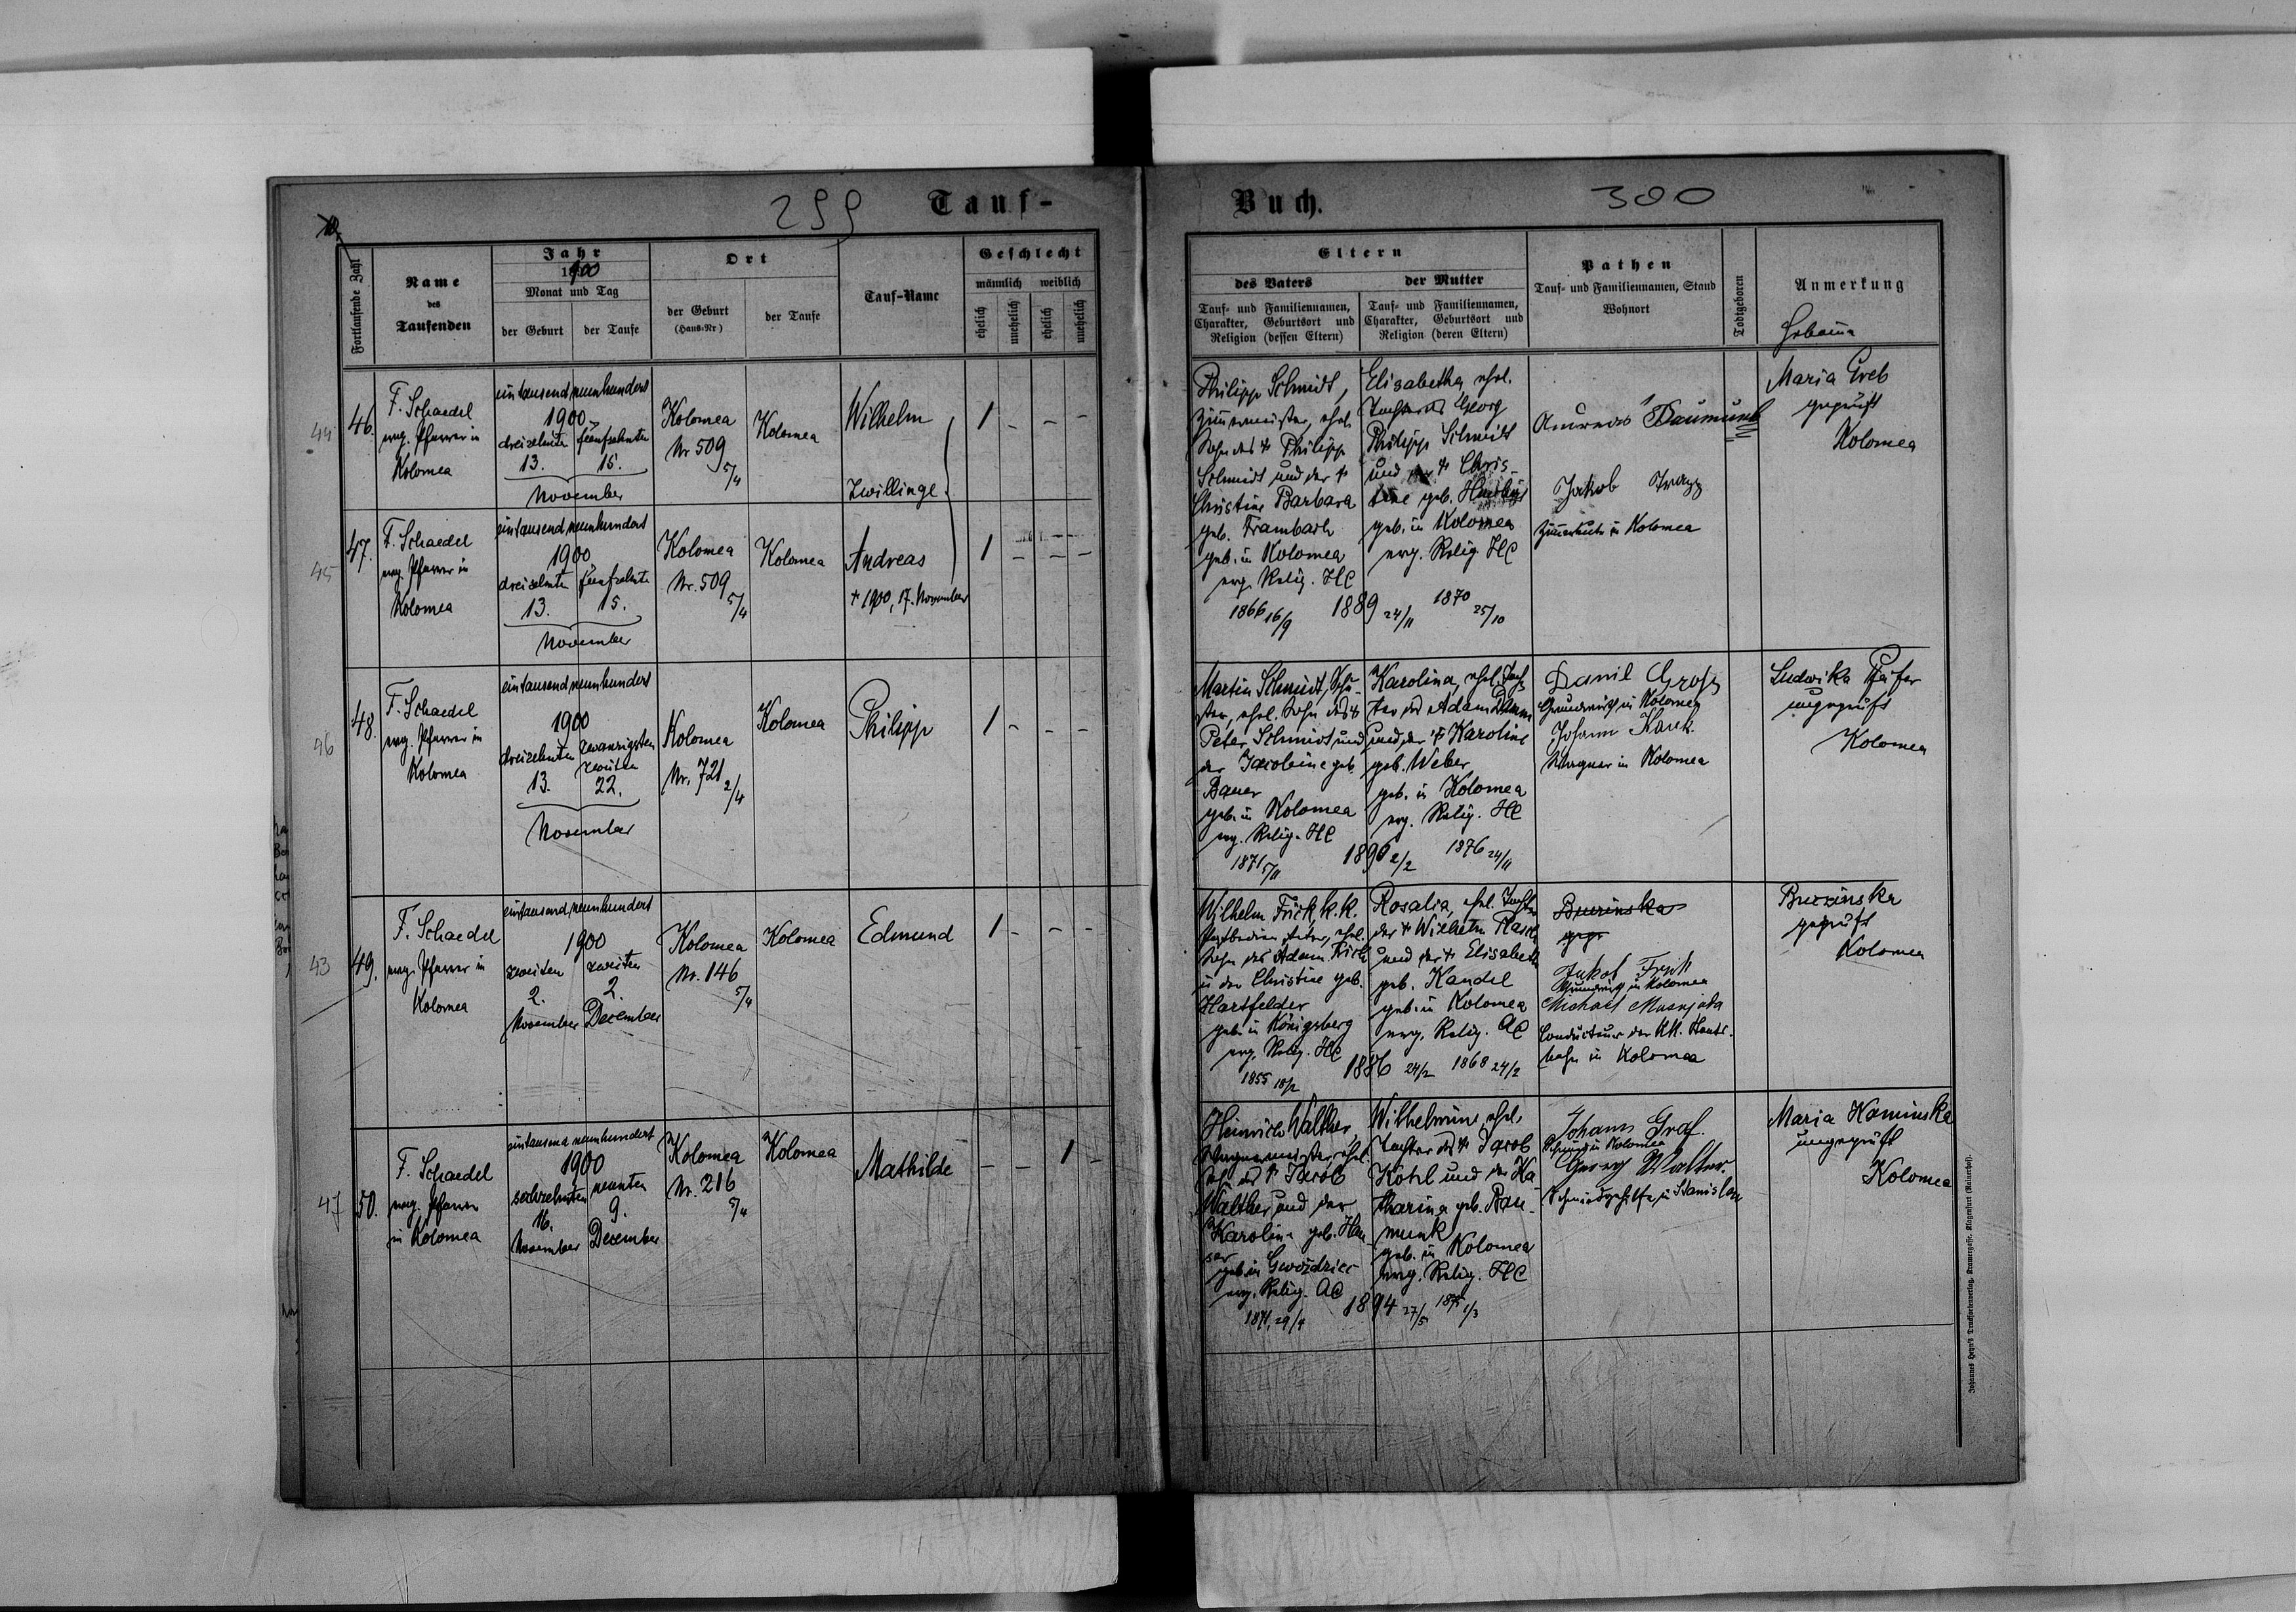 299
Tauf-
Fortlaufende Zahl
Name
des
Taufenden
Jahr
1900
Monat und Tag
der Geburt
der Taufe
Ort
der Geburt
(Haus-Nr)
der Taufe
Tauf-Name
Geschlecht
männlich
weiblich
ehelich
unehelich
ehelich
unehelich
44
46.
F. Schaedel
evg. Pfarrer in
Kolomea
eintausend neunhundert
1900
dreizehnten
fünfzehnten
13.
15.
November
Kolomea
Nr 509
5/4
Kolomea
Wilhelm
Zwillinge
1 - - -
45
47.
F. Schaedel
evg. Pfarrer in
Kolomea
eintausend neunhundert
1900
dreizehnten
fünfzehnten
13.
15.
November
Kolomea
Nr. 509
5/4
Kolomea
Andreas
† 1900, 17. November
1 - - -
46
48.
F. Schaedel
evg. Pfarrer in
Kolomea
eintausend neunhundert
1900
dreizehnten
zwanzigsten
zweiten
13.
22.
November
Kolomea
Nr. 721
2/4
Kolomea
Philipp
1 - - -
43
49.
F. Schaedel
evg. Pfarrer in
Kolomea
eintausend neunhundert
1900
zweiten
zweiten
2.
2.
November
December
Kolomea
Nr. 146
5/4
Kolomea
Edmund
1 - - -
47
50.
F. Schaedel
evg. Pfarrer
in Kolomea
eintausend neunhundert
1900
sechzehnten
neunten
16.
9.
November
December
Kolomea
Nr. 216
5/4
Kolomea
Mathilde
- - 1 -
Buch.
300
Eltern
des Vaters
Tauf- und Familiennamen,
Charakter, Geburtsort und
Religion (dessen Eltern)
der Mutter
Tauf- und Familiennamen,
Charakter, Geburtsort und
Religion (deren Eltern)
Pathen
Tauf- und Familiennamen, Stand
Wohnort
Todtgeboren
Anmerkung
Hebamme
Philipp Schmidt,
Zimmermeister, ehel.
Sohn des † Philipp
Schmidt und der †
Christine Barbara
geb. Frambach
geb. in Kolomea
evg. Relig. HC
1866 16/9
1889 24/11
Elisabetha, ehel.
Tochter des Georg
Philipp Schmidt
und † Chris-
tine geb.
geb. in Kolomea
evg. Relig. HC
1870 25/10
Andreas Baumunk
Jakob Trapp
Zimmerleute in Kolomea
Maria Greb
geprüft
Kolomea
Martin Schmidt, Schu-
ster, ehel. Sohn des †
Peter Schmidt und
der Jacobine geb.
Bauer
geb. in Kolomea
evg. Relig. HC
1871 5/11
1896 2/2
Karolina, ehel. Toch-
ter des Adam
und der † Karoline
geb. Weber
geb. in Kolomea
evg. Relig. HC
1876 24/11
Danil Groß
Grundwirth in Kolomea
Johann
Wagner in Kolomea
Ludwika Pfeifer
ungeprüft
Kolomea
Wilhelm Frick, k. k.
Postbediensteter, ehel.
Sohn des Adam Frick
u. der Christine geb.
Hartfelder
geb. in Königsberg
evg. Relig. HC
1855 18/2
1886 24/2
Rosalia, ehel. Tochter
des † Wilhelm
und der † Elisabeth
geb. Kandel
geb. in Kolomea
evg. Relig. AC
1868 24/2
Buczinska
gepr
Jakob Frick
Grundwirth in Kolomea
Michael
Conducteur der kk. Staats-
bahn in Kolomea
Buczinska
geprüft
Kolomea
Heinrich Walther,
Wagnermeister, ehel.
Sohn des † Jacob
Walther und der
Karolina geb. Hau-
ser
geb. in Gwoździec
evg. Relig. AC
1871, 29/4
1894 27/5
Wilhelmine, ehel.
Tochter des † Jacob
Kohl und der Ka-
tharina geb. Bau-
munk
geb. in Kolomea
evg. Relig. HC
1875 1/3
Johann Graf.
Schmied in Kolomea
Georg Walther.
Schmiedgehilfe in Stanislau
Maria Kaminska
ungeprüft
Kolomea
Johannes Heyn's Drucksortenverlag, Kramergasse, Klagenfurt (Rainerhof).